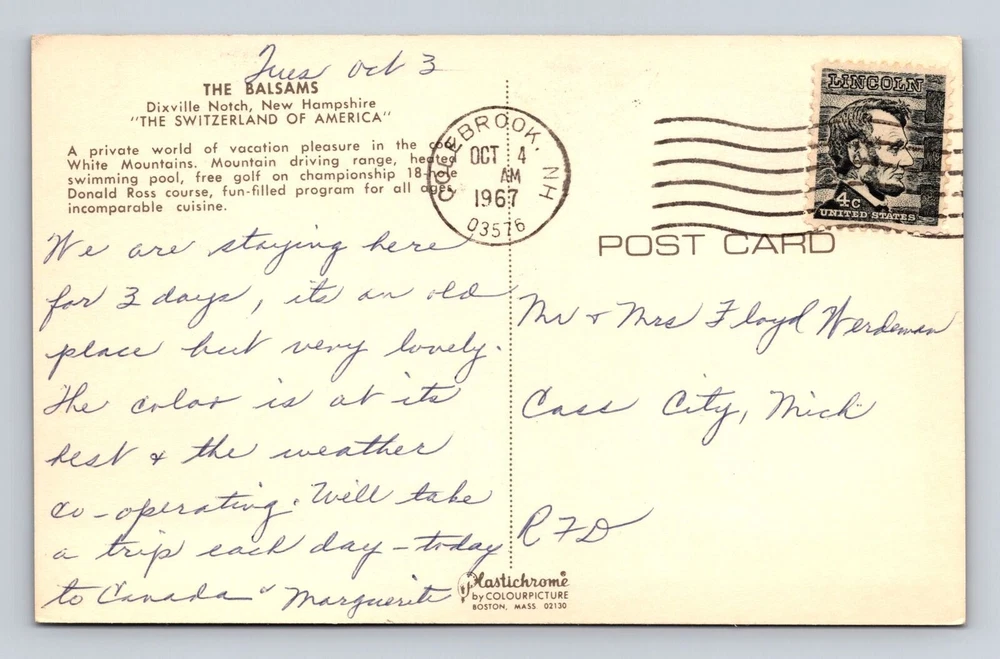 Tues Oct 3
THE BALSAMS
Dixville Notch, New Hampshire
"THE SWITZERLAND OF AMERICA"
A private world of vacation pleasure in the
White Mountains. Mountain driving range, heated
swimming pool, free golf on championship 18-hole
Donald Ross course, fun-filled program for all ages,
incomparable cuisine.
We are staying here
for 3 days, its an old
place but very lovely.
The color is at its
best & the weather
co-operating. Will take
a trip each day - today
to Canada Marguerite
COLEBROOK, NH
OCT 4
AM
1967
03576
LINCOLN
4c
UNITED STATES
POST CARD
Mr & Mrs Floyd Werdeman
Cass City, Mich
RFD
Plastichrome
by COLOURPICTURE
BOSTON, MASS 02130